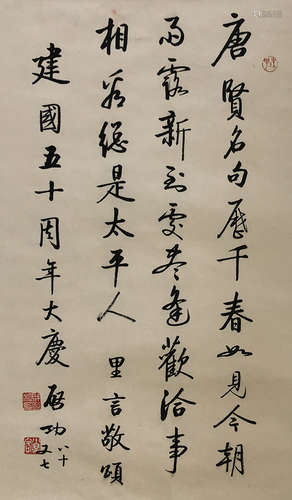 唐賢名句歷千春如見今朝
雨露新到處岑逢歡洽事
相看總是太平人 里言敬頌
建國五十周年大慶 啓功 八十又七